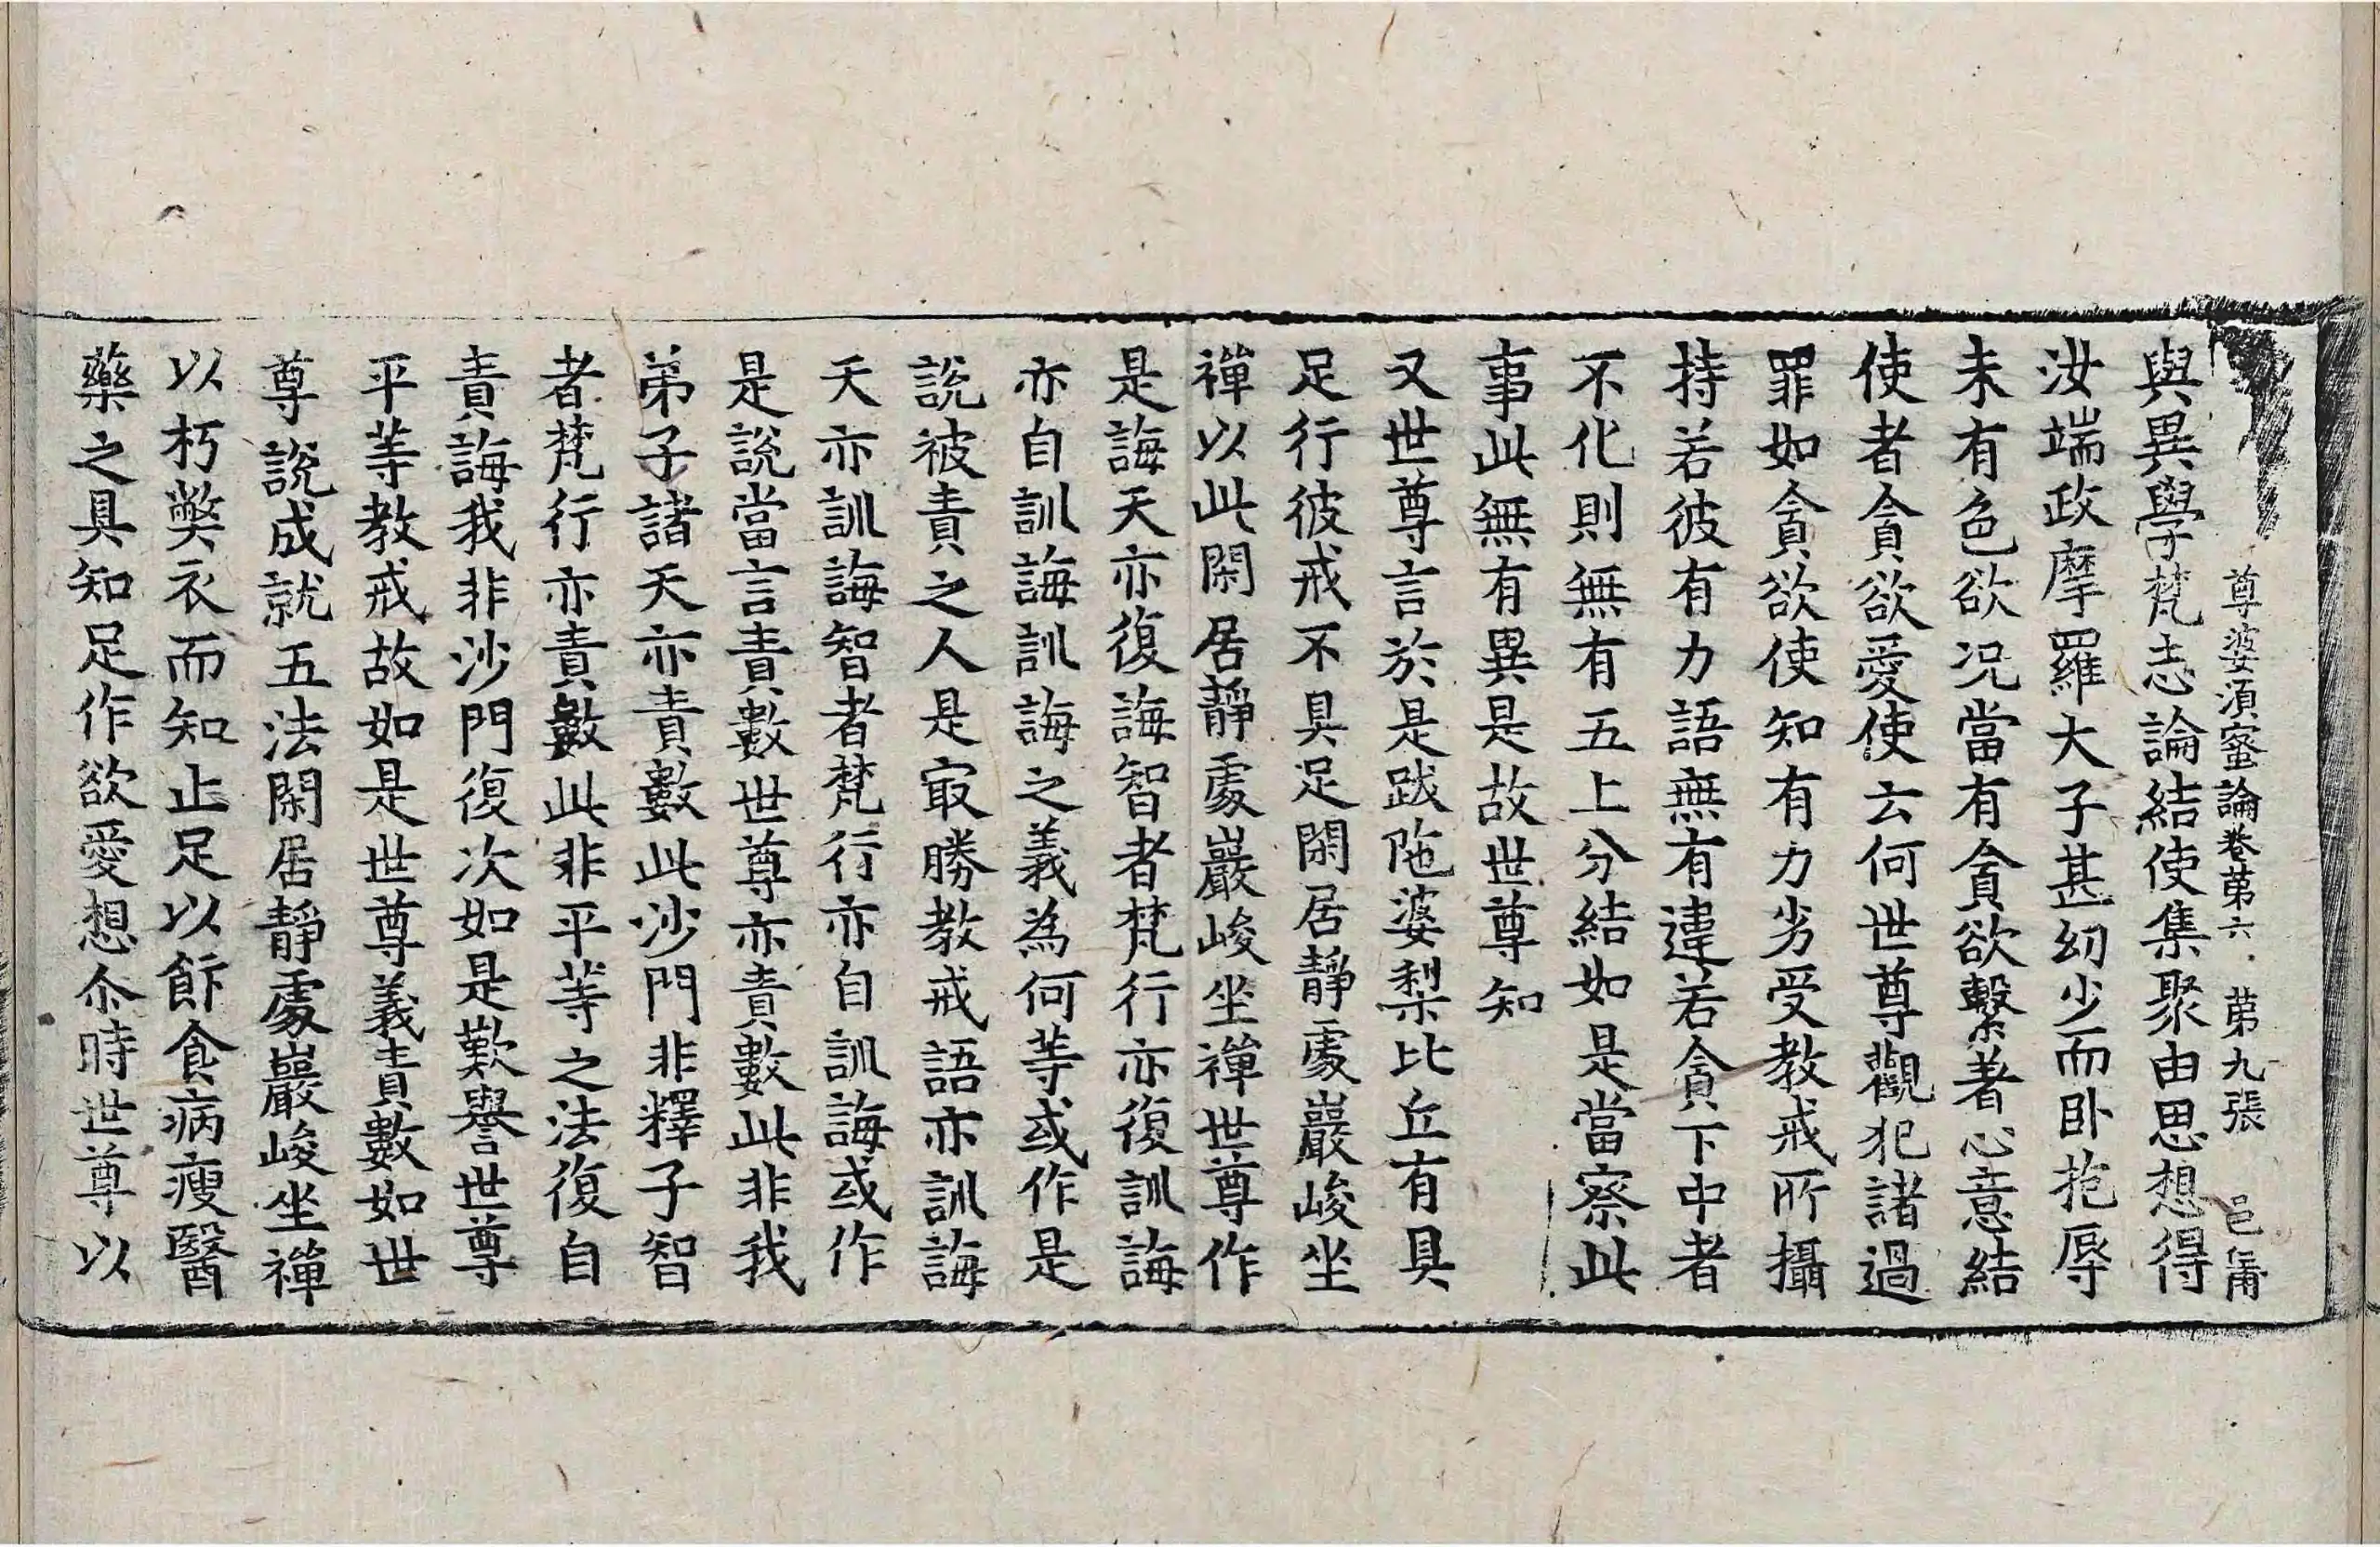 尊婆須蜜論卷第六 第九張 邑
與異學梵志論結使集聚由思想得
汝端政摩羅大子甚幼少而臥抱辱
未有色欲況當有貪欲繫著心意結
使者貪欲愛使云何世尊觀犯諸過
罪如貪欲使知有力劣受教戒所攝
持若彼有力語無有違若貪下中者
不化則無有五上分結如是當察此
事此無有異是故世尊知
又世尊言於是跋陁婆梨比丘有具
足行彼戒不具足閑居靜處巖峻坐
禪以此閑居靜處巖峻坐禪世尊作
是誨天亦復誨智者梵行亦復訓誨
亦自訓誨訓誨之義為何等或作是
說被責之人是㝡勝教戒語亦訓誨
天亦訓誨智者梵行亦自訓誨或作
是說當言責數世尊亦責數此非我
弟子諸天亦責數此沙門非釋子智
者梵行亦責數此非平等之法復自
責誨我非沙門復次如是歎譽世尊
平等教戒故如是世尊義責數如世
尊說成就五法閑居靜處巖峻坐禪
以朽弊衣而知止足以飾食病瘦醫
藥之具知足作欲愛想尒時世尊以